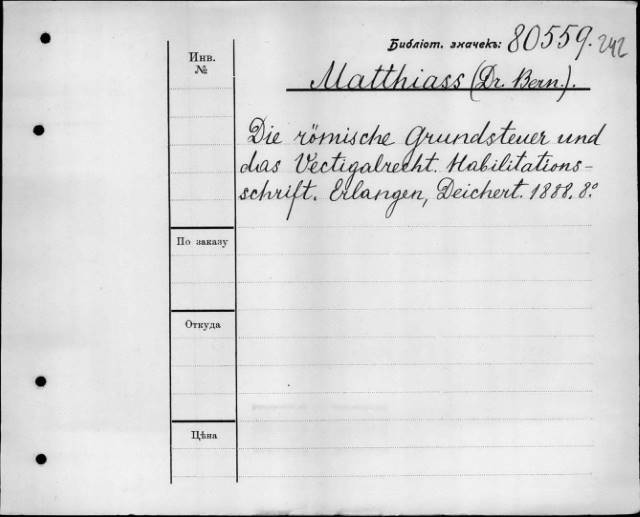 Библіот. значекъ: 80559. 242
Инв. №
Matthiass (Dr. Bern.).
Die römische Grundsteuer und
das Vectigalrecht. Habilitations-
schrift. Erlangen, Deichert. 1888. 8.°
По заказу
Откуда
Цѣна